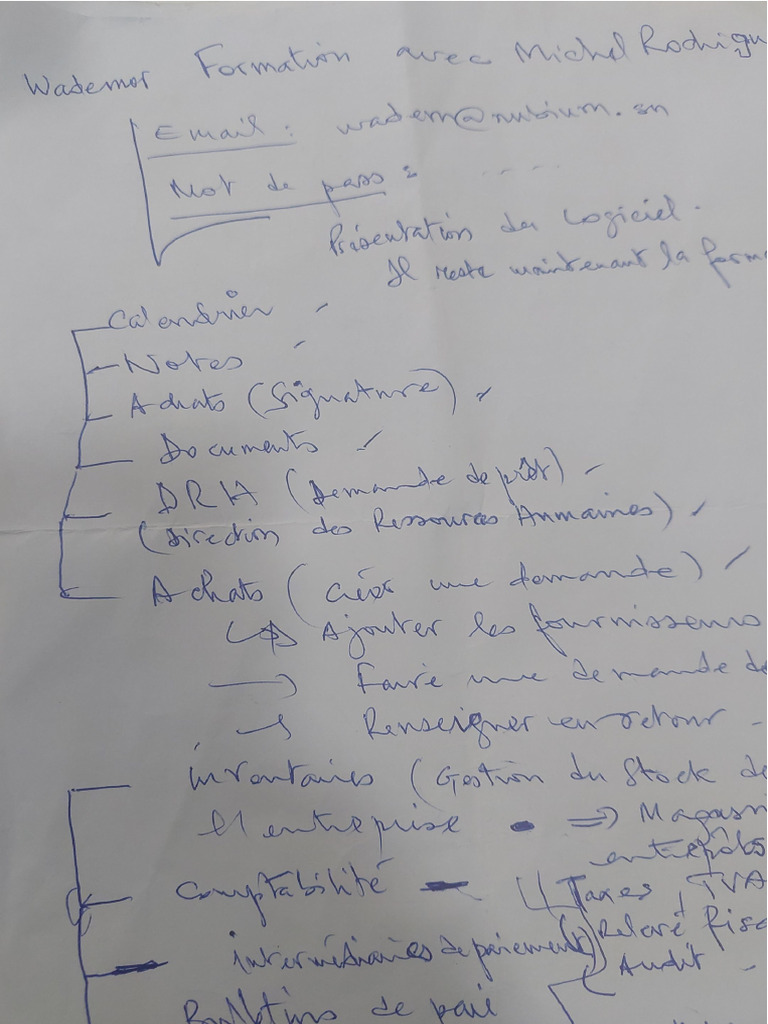 Wademor Formation avec Michel Rodrigu
Email : wadem@nubium.sn
Mot de pass : .....
Présentation du Logiciel.
Il reste maintenant la forma
Calendrier
Notes
Achats (Signature)
Documents
DRH (Demande de prêt)
(Direction des Ressources Humaines)
Achats (Créer une demande)
Ajouter les fournisseurs
→ Faire une demande de
→ Renseigner en retour -
inventaires (Gestion du Stock de
l'entreprise • => Magasin
entrepôts
Comptabilité - Taxes, TVA
Relevé fisca
intermédiaires de paiement
Audit -
Bulletins de paie